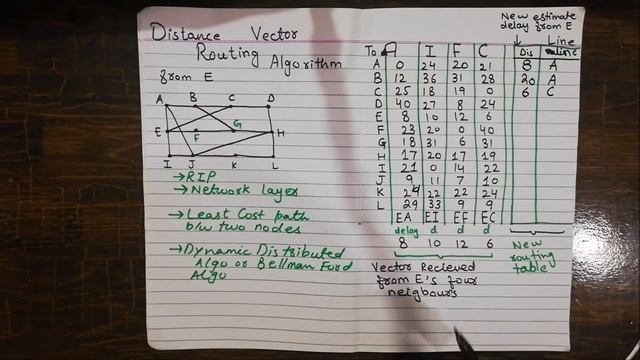 Distance Vector
Routing Algorithm
from E
A B C D
E F G H
I J K L
→ RIP
→ Network layer
→ Least Cost path
b/w two nodes
→ Dynamic Distributed
Algo or Bellman Ford
Algo
New estimate
delay from E
Line
To A I F C Dis Line
A 0 24 20 21 8 A
B 12 36 31 28 20 A
C 25 18 19 0 6 C
D 40 27 8 24
E 8 10 12 6
F 23 20 0 40
G 18 31 6 31
H 17 20 17 19
I 21 0 14 22
J 9 11 7 10
K 24 22 22 24
L 29 33 9 9
EA EI EF EC
delay d d d
8 10 12 6
New
routing
table
Vector Recieved
from E's four
neigbours